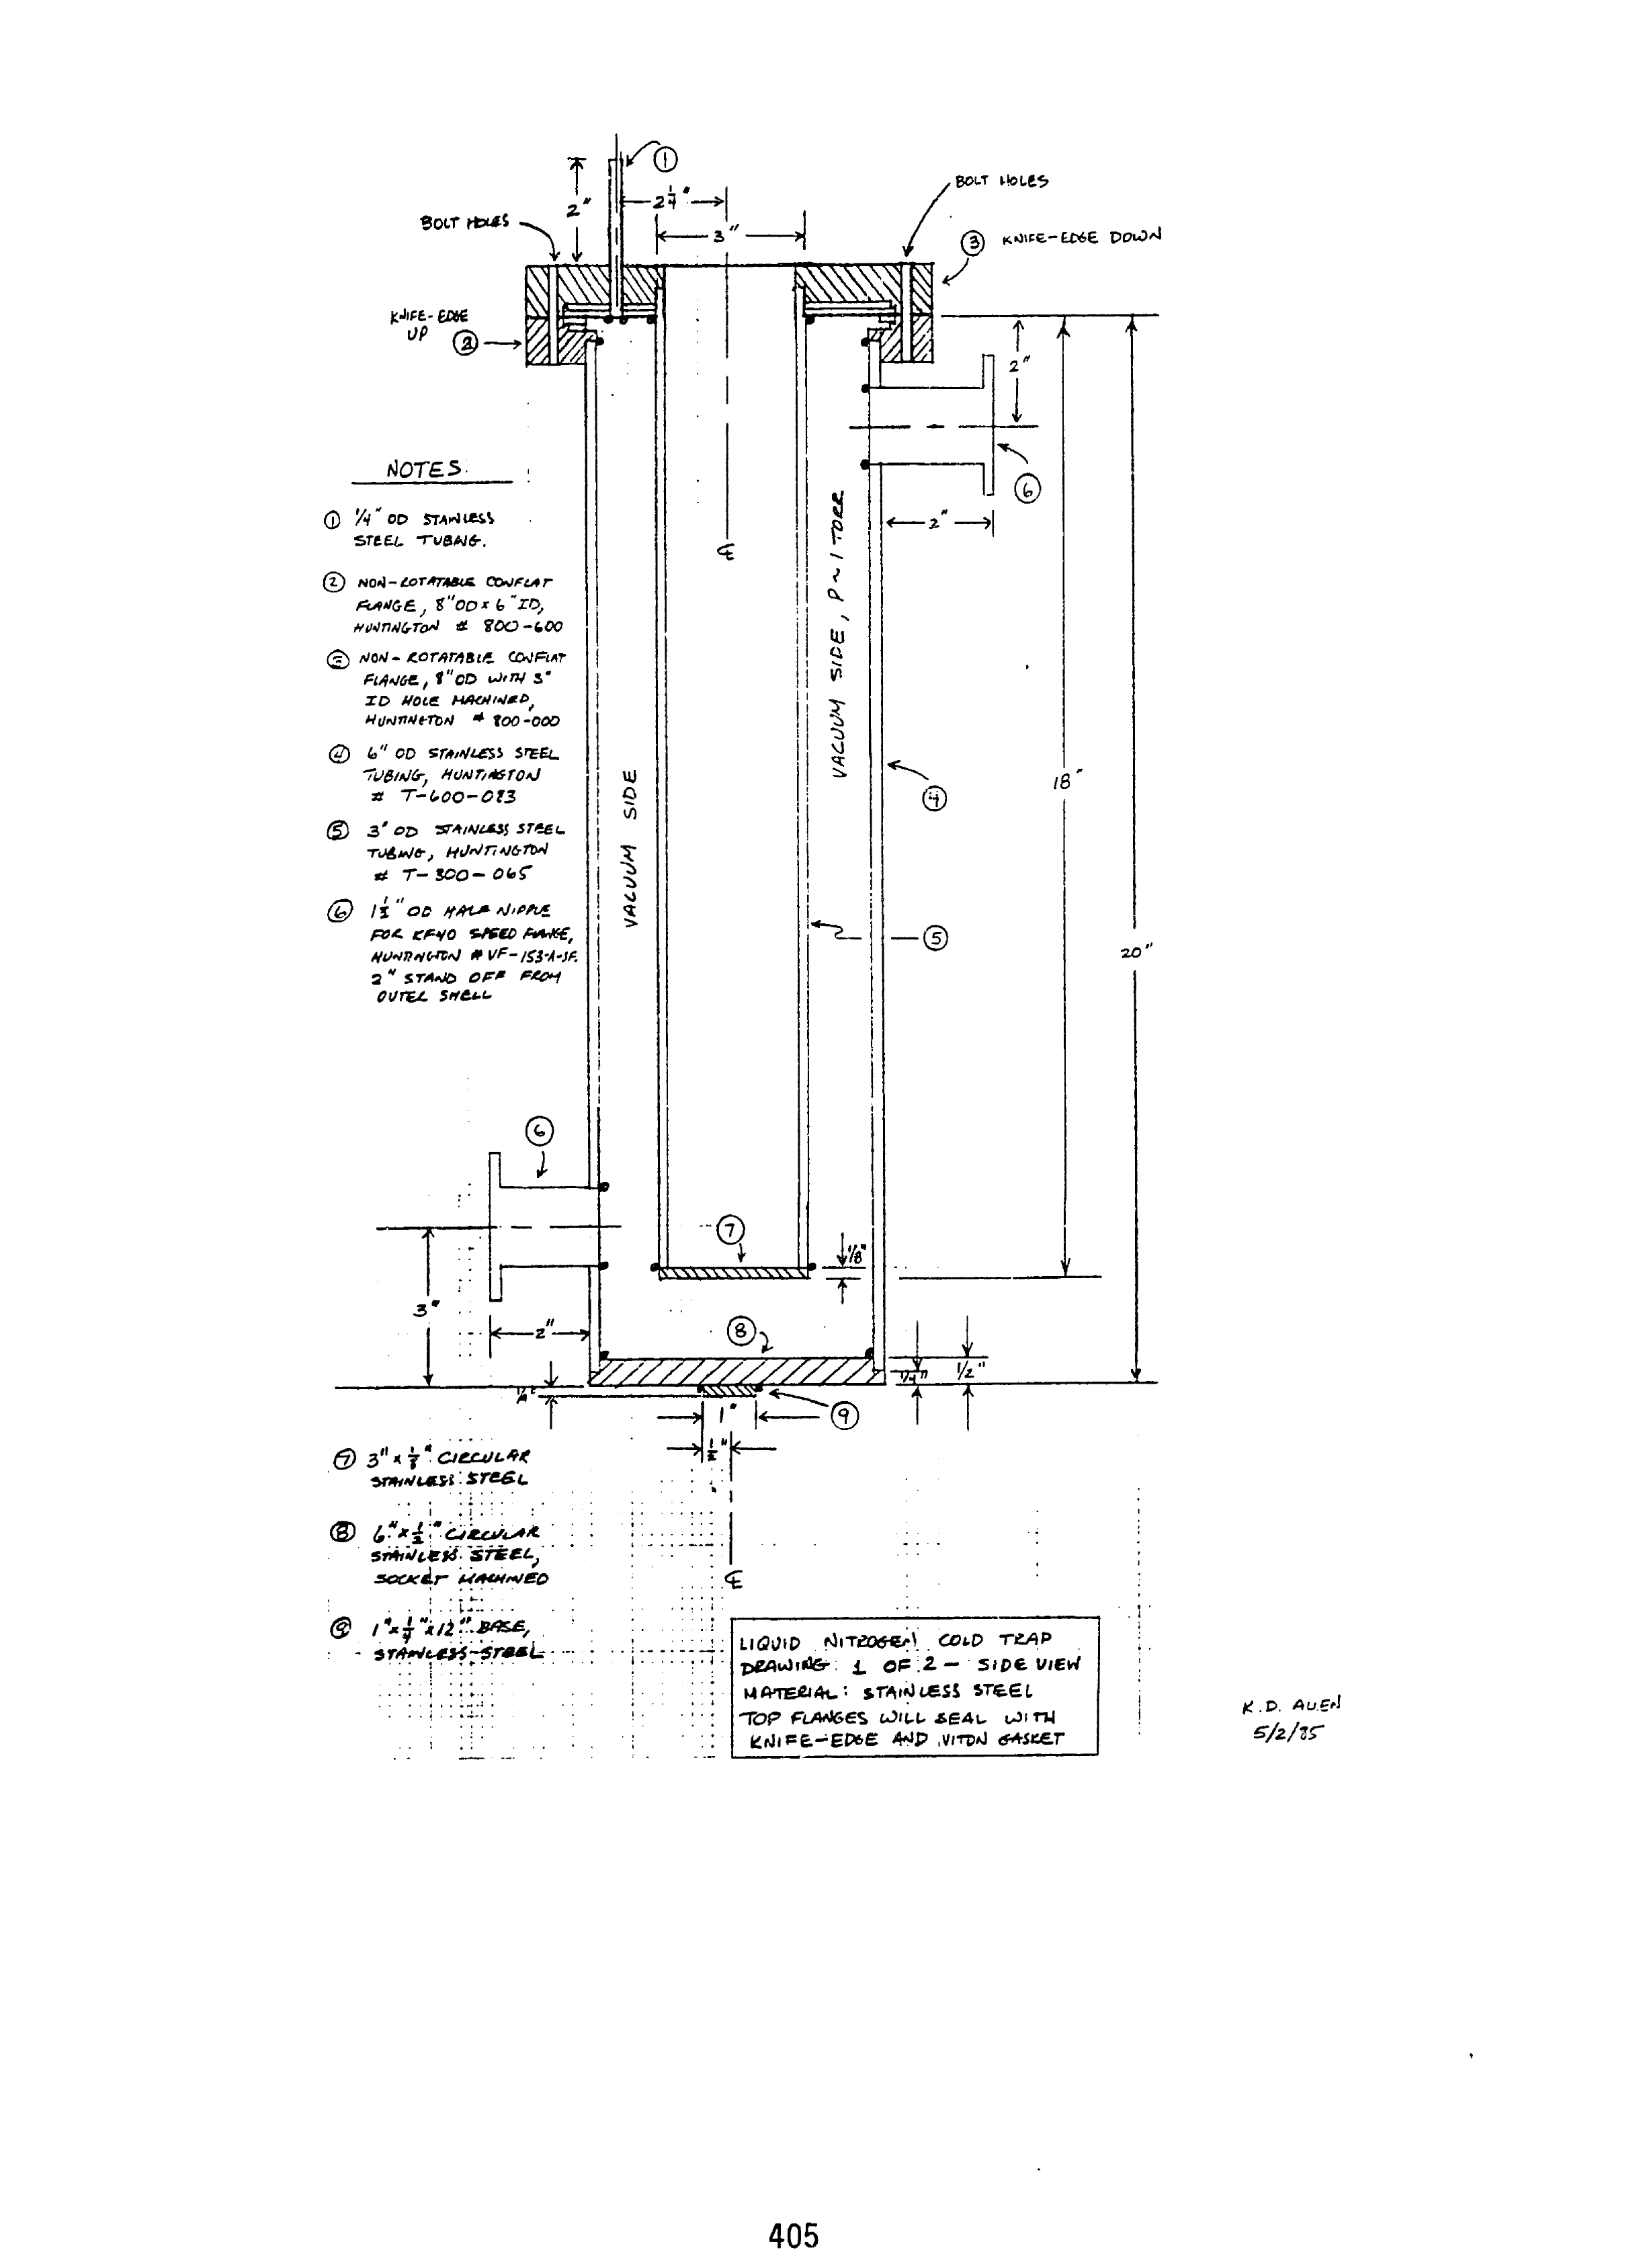 ①
2"
2 1/4"
3"
BOLT HOLES
BOLT HOLES
③ KNIFE-EDGE DOWN
KNIFE-EDGE
UP
②
2"
⑥
2"
℄
NOTES
① 1/4" OD STAINLESS
STEEL TUBING.
② NON-ROTATABLE CONFLAT
FLANGE, 8" OD x 6" ID,
HUNTINGTON # 800-600
③ NON-ROTATABLE CONFLAT
FLANGE, 8" OD WITH 3"
ID HOLE MACHINED,
HUNTINGTON # 800-000
④ 6" OD STAINLESS STEEL
TUBING, HUNTINGTON
# T-600-083
⑤ 3" OD STAINLESS STEEL
TUBING, HUNTINGTON
# T-300-065
⑥ 1 1/2" OD HALF NIPPLE
FOR KF40 SPEED FLANGE,
HUNTINGTON # VF-153-A-SF.
2" STAND OFF FROM
OUTER SHELL
VACUUM SIDE
VACUUM SIDE, P~1 TORR
④
18"
⑤
20"
⑥
⑦
1/8"
3"
2"
⑧
1/4"
1/2"
1/4"
1"
⑨
1/2"
℄
⑦ 3" x 1/8" CIRCULAR
STAINLESS STEEL
⑧ 6" x 1/2" CIRCULAR
STAINLESS STEEL,
SOCKET MACHINED
⑨ 1" x 1/4" x 12" BASE,
STAINLESS STEEL
LIQUID NITROGEN COLD TRAP
DRAWING: 1 OF 2 - SIDE VIEW
MATERIAL: STAINLESS STEEL
TOP FLANGES WILL SEAL WITH
KNIFE-EDGE AND VITON GASKET
K.D. ALLEN
5/2/85
405